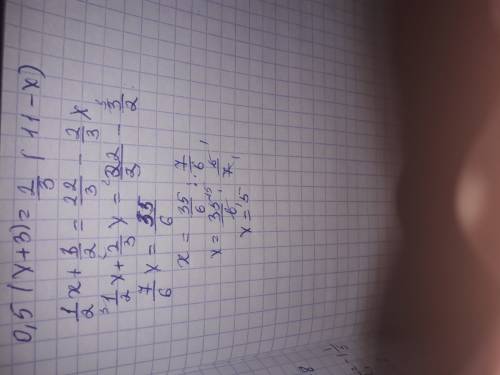 0,5 (x+3) = 2/3 (11-x)
1/2 x + 3/2 = 22/3 - 2/3 x
1/2 x + 2/3 x = 22/3 - 3/2
7/6 x = 35/6
x = 35/6 : 7/6
x = 35/6 · 6/7
x = 5